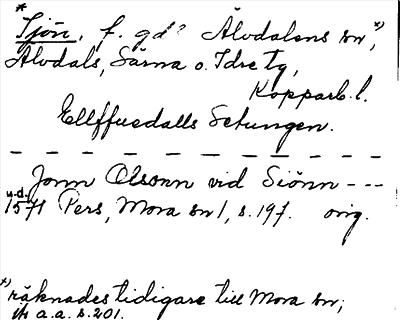 *
Sjön, f. gd? Älvdalens sn *),
Älvdals, Särna o. Idre tg,
Kopparb. l.
Ellffuedalls Setungen.
Jonn Olsonn vid Siönn ---
u.d.
1571 Pers, Mora sn 1, s. 197. orig.
*) räknades tidigare till Mora sn;
jfr a.a. s. 201.